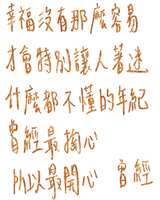 幸福沒有那麼容易
才會特別讓人著迷
什麼都不懂的年紀
曾經最掏心
所以最開心 曾經